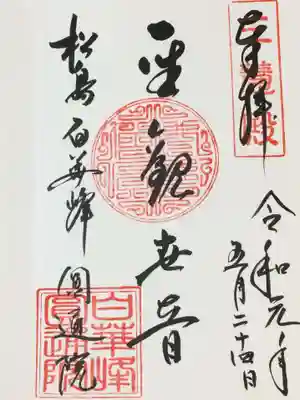 奉拝
令和元年
五月二十四日
聖観世音
松島 白華峰 圓通院
白華峰
圓通院